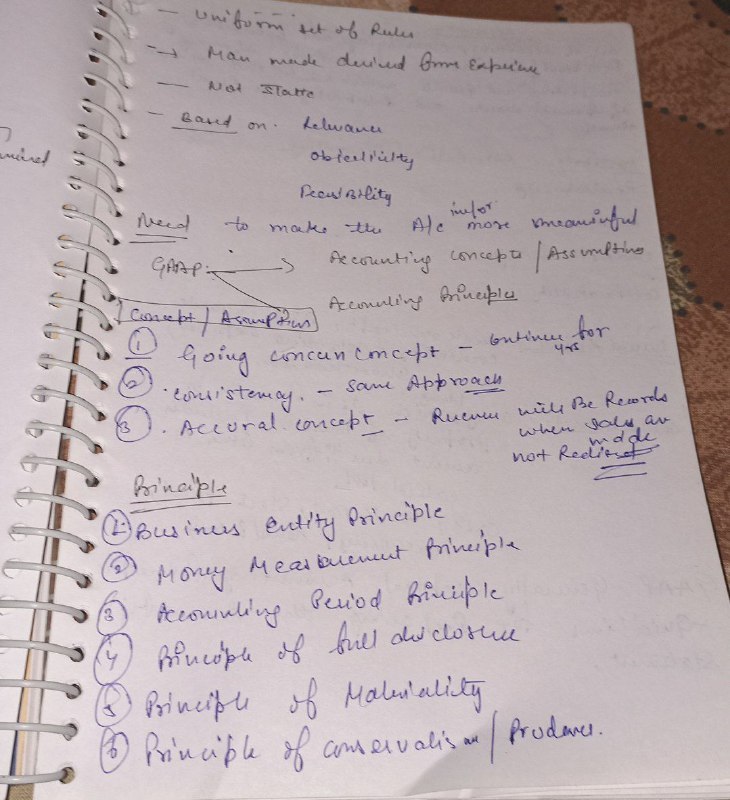 - Uniform set of Rules
→ Man made derived from Experience
- Not Static
- Based on. Relevance
Objectivity
Feasibility
Need to make the A/c infor more meaningful
GAAP → Accounting concepts / Assumptions
Accounting Principles
Concept / Assumption
① Going concern concept - continue for yrs
② . consistency. - same Approach
③ . Accural concept - Revenue will Be Records
when sales are
made
not Realised
Principle
① Business entity Principle
② Money Measurement Principle
③ Accounting Period Principle
④ Principle of full disclosure
⑤ Principle of Materiality
⑥ Principle of conservatism / Prudence.